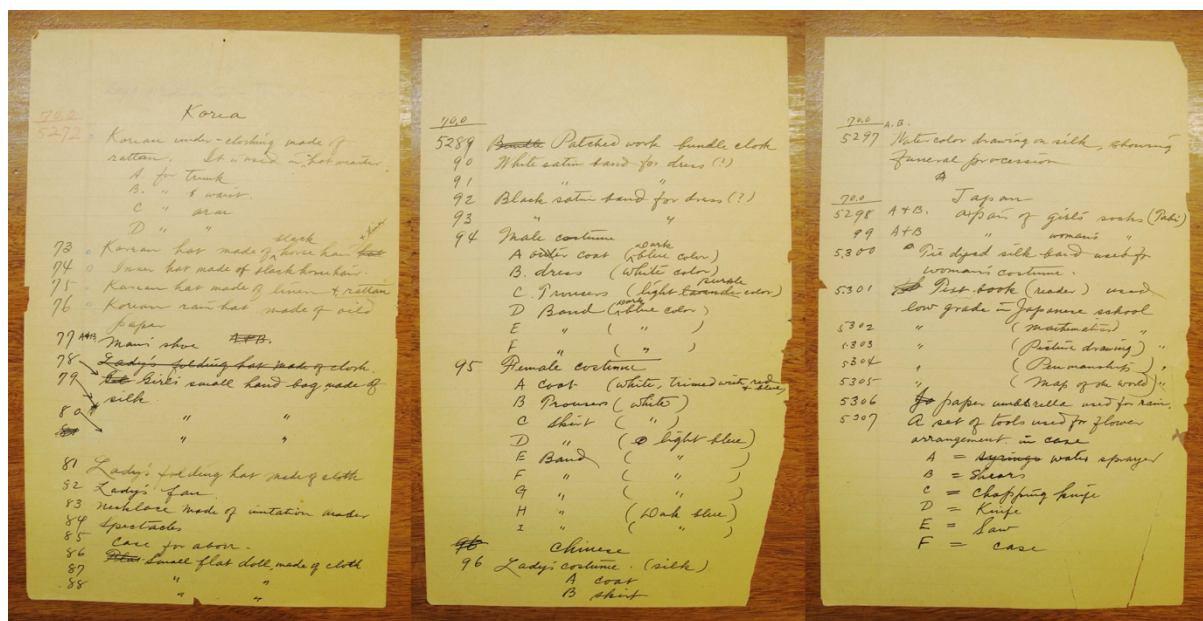 Korea
70.0
5272 Korean under-clothing made of
rattan. It is used in hot weather
A for trunk
B. " " waist
C " arm
D " "
73 Korean hat made of black horse hair
74 Inner hat made of black horsehair.
75 Korean hat made of linen & rattan
76 Korean rain hat made of oild
paper
77 A+B Man's shoe A+B.
78 Lady's folding hat made of cloth.
79 Girl's small hand bag made of
silk.
80 " "
" "
81 Lady's folding hat made of cloth
82 Lady's fan
83 necklace made of imitation
84 Spectacles
85 Case for above.
86 Small flat doll, made of cloth
87 " "
88 " "
70.0
5289 Bundle Patched work bundle cloth
90 White satin band for dress (?)
91 " "
92 Black satin band for dress (?)
93 " "
94 Male costume
A outer coat (Dark blue color)
B. dress (white color)
C. Trousers (light purple color)
D Band (Dark blue color)
E " ( " )
F " ( " )
95 Female costume
A coat (white, trimed with red & blue)
B Trousers (white)
C Skirt ( " )
D " (light blue)
E Band ( " )
F " ( " )
G " ( " )
H " (Dark blue)
I " ( " )
96 Chinese
96 Lady's costume. (silk)
A coat
B skirt
70.0 A.B.
5297 Water color drawing on silk, showing
funeral procession
A
70.0 Japan
5298 A+B. a pair of girl's socks (Tabi)
99 A+B " woman's "
5300 Tie dyed silk band used for
woman's costume.
5301 Text-book (reader) used
low grade in Japanese school
5302 " (mathematics) "
5303 " (Picture drawing) "
5304 " (Penmanship) "
5305 " (Map of the world) "
5306 paper umbrella used for rain.
5307 A set of tools used for flower
arrangement in case
A = syringe water sprayer
B = Shears
C = chopping knife
D = Knife
E = Saw
F = case